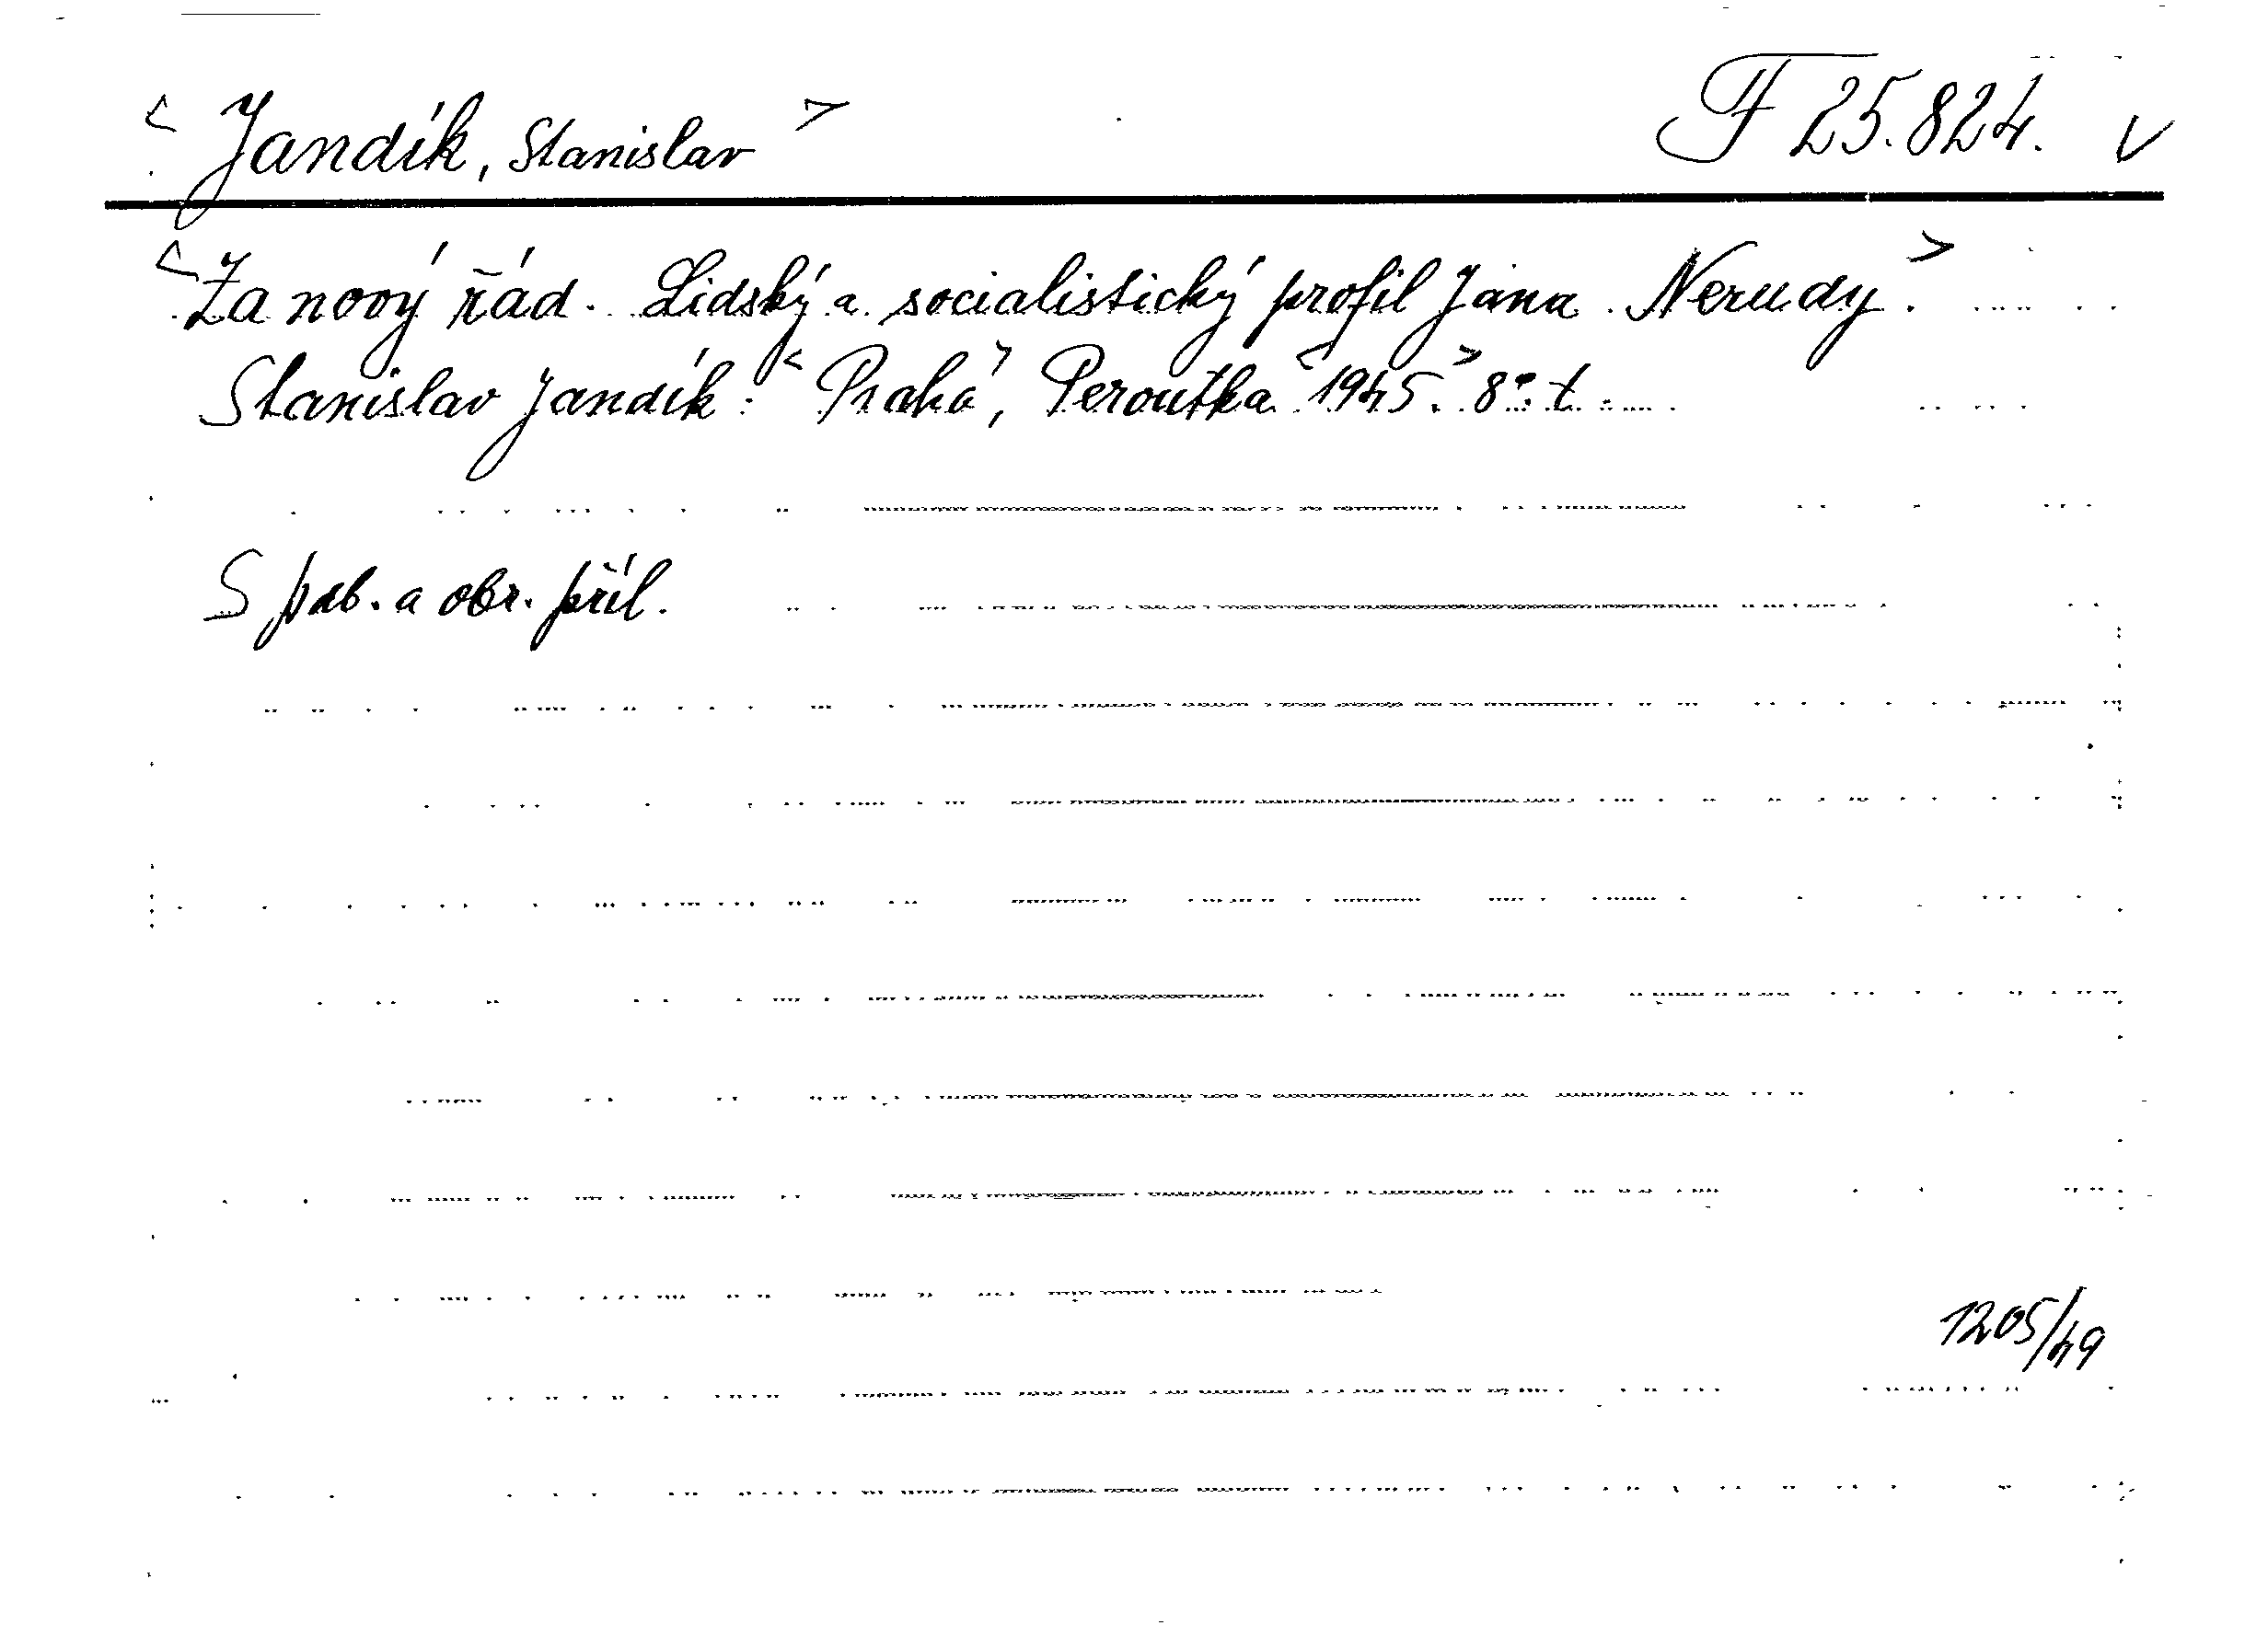 < Jandík, Stanislav > F 25.824. v
< Za nový řád. Lidský a socialistický profil Jana Nerudy. >
Stanislav Jandík. < Praha >, Peroutka < 1945. > 8°. t.
S pab. a obr. příl.
1205/49